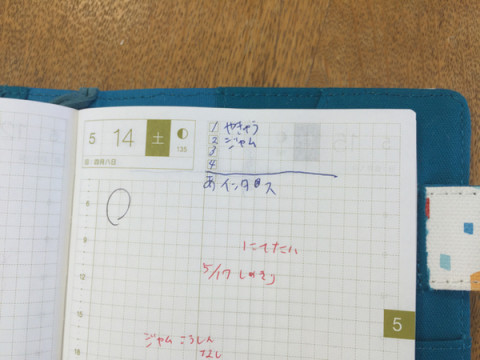 5 14 土
135
旧:四月八日
1 やきゅう
2 ジャム
3
4
あ インタロス
にてたい
5/17 しめきり
ジャム こうしん
なし
9
12
15
18
5